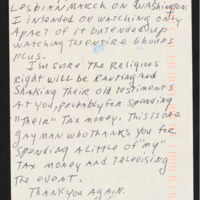 Lesbian March on Washington.
I intended on watching only
a part of it but ended up
watching the entire 6 hours
plus.
I'm sure the Religious
Right will be Ranting and
Shaking their old testiments
at you, probably for spending
"Their" Tax money. This is one
gay man who thanks you for
spending a little of "my"
Tax money and televising
the event.
Thank you Again.